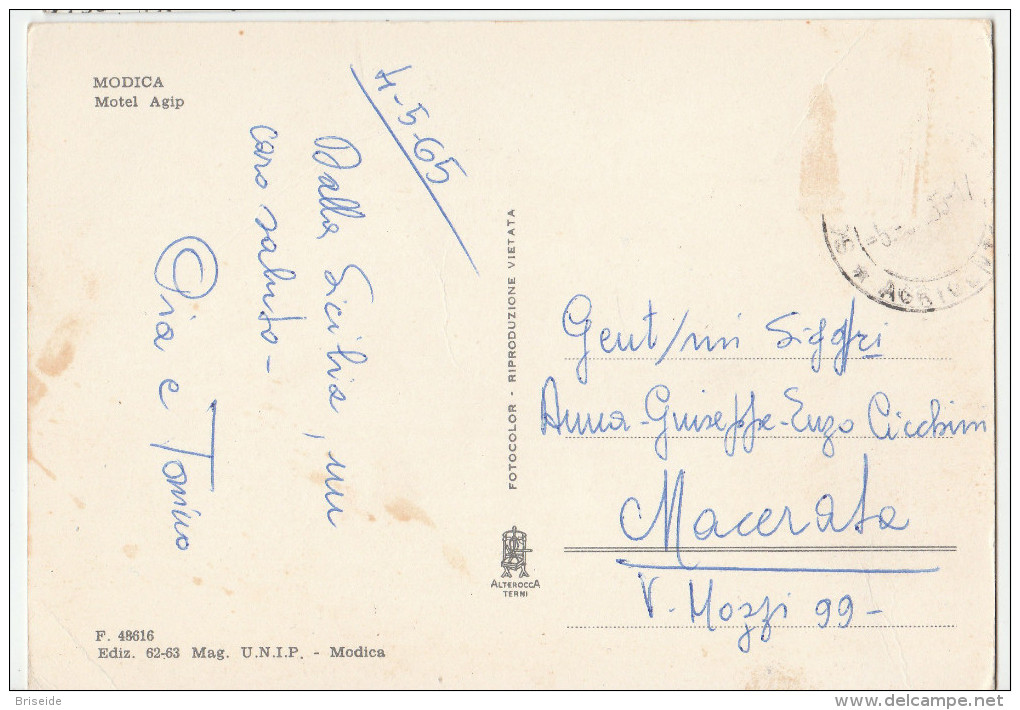 MODICA
Motel Agip
4-5-65
Dalla Sicilia, un
caro saluto-
Pia e Tonino
FOTOCOLOR - RIPRODUZIONE VIETATA
ALTEROCCA
TERNI
Gent/mi Sigg/ri
Anna-Giuseppe-Enzo Cicchini
Macerata
V. Mozzi 99-
F. 48616
Ediz. 62-63 Mag. U.N.I.P. - Modica
Briseide
delcampe.net